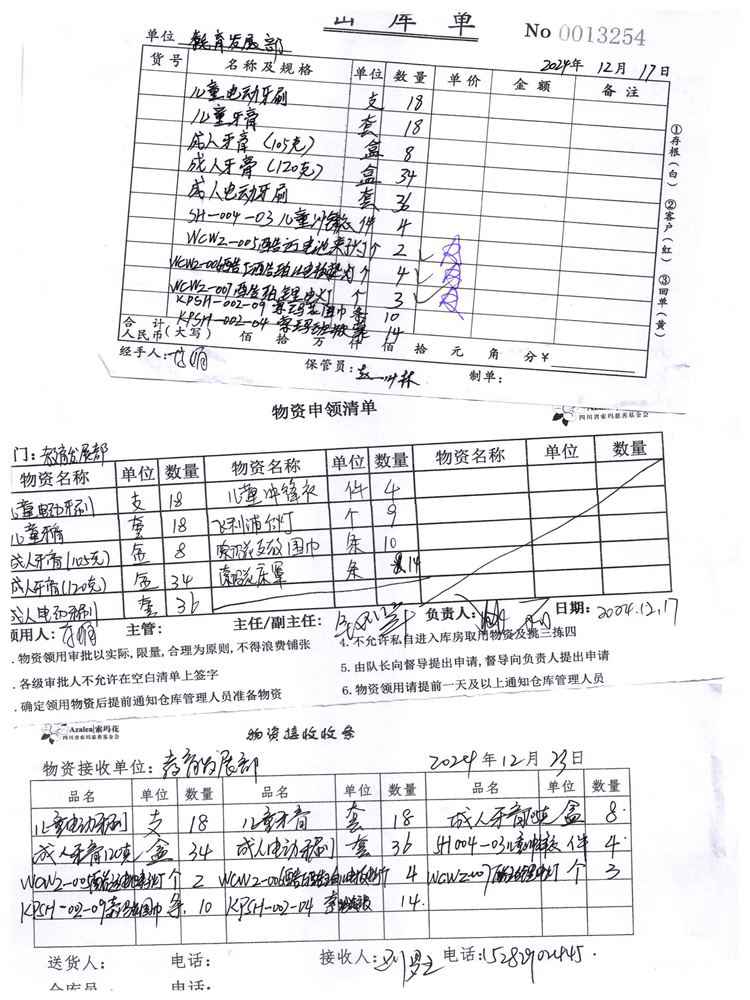 出库单 No 0013254
单位 教育发展部 2024年 12月 17日
货号 名称及规格 单位 数量 单价 金额 备注
儿童电动牙刷 支 18
儿童牙膏 套 18
成人牙膏(105克) 盒 8
成人牙膏(120克) 盒 34
成人电动牙刷 套 36
SH-004-03儿童冲锋衣 件 4
WCW2-005酷 个 2
WCW2-006酷 个 4
WCW2-007酷 个 3
KPSH-002-09索玛花围巾 条 10
KPSH-002-04索玛花 条 14
合计人民币(大写) 佰 拾 万 仟 佰 拾 元 角 分 ¥
经手人: 保管员: 制单:
①存根(白) ②客户(红) ③回单(黄)
物资申领清单
四川省索玛慈善基金会
门:教育发展部
物资名称 单位 数量 物资名称 单位 数量 物资名称 单位 数量
儿童电动牙刷 支 18 儿童冲锋衣 件 4
儿童牙膏 套 18 飞利浦台灯 个 9
成人牙膏(105克) 盒 8 索玛花 围巾 条 10
成人牙膏(120克) 盒 34 索玛花床罩 条 14
成人电动牙刷 套 36
领用人: 主管: 主任/副主任: 负责人: 日期: 2024.12.17
.物资领用审批以实际,限量,合理为原则,不得浪费铺张 4.不允许私自进入库房取用物资及挑三拣四
.各级审批人不允许在空白清单上签字 5.由队长向督导提出申请,督导向负责人提出申请
.确定领用物资后提前通知仓库管理人员准备物资 6.物资领用请提前一天及以上通知仓库管理人员
Azalea|索玛花
四川省索玛慈善基金会
物资接收收条
物资接收单位:教育发展部 2024年12月23日
品名 单位 数量 品名 单位 数量 品名 单位 数量
儿童电动牙刷 支 18 儿童牙膏 套 18 成人牙膏 盒 8
成人牙膏120克 盒 34 成人电动牙刷 套 36 SH004-03儿童冲锋衣 件 4
WCW2-005 个 2 WCW2-006 个 4 WCW2-007 个 3
KPSH-02-09索玛花围巾 条 10 KPSH-02-04 14
送货人: 电话: 接收人: 电话:15282902445.
仓库员 电话: